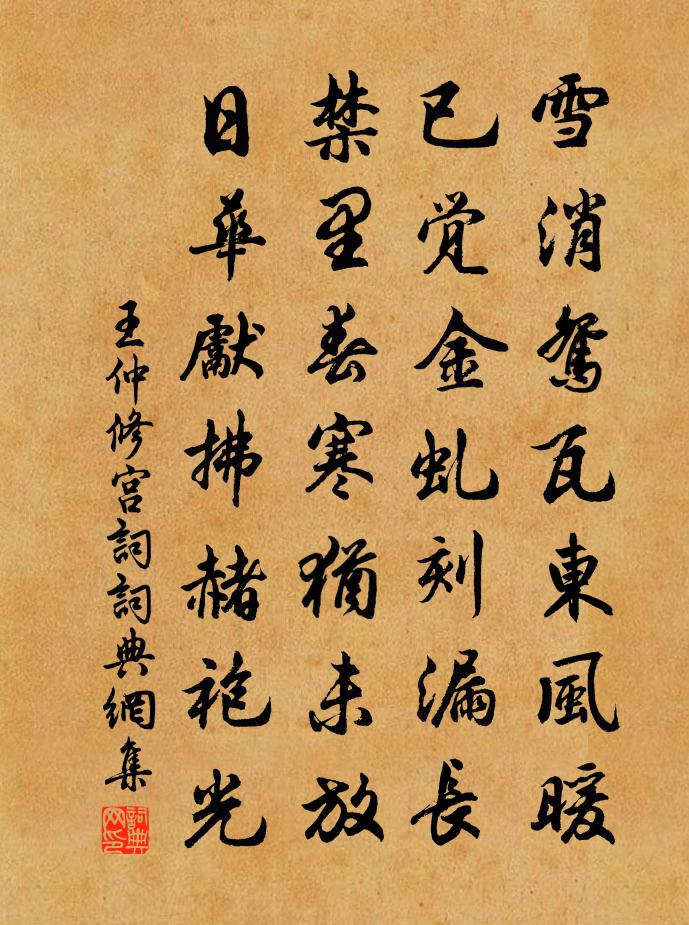 雪消鴛瓦東風暖
已觉金虬刻漏長
禁里春寒猶未放
日華獻拂赭袍光
王仲修宫詞詞典網集
詞典网印